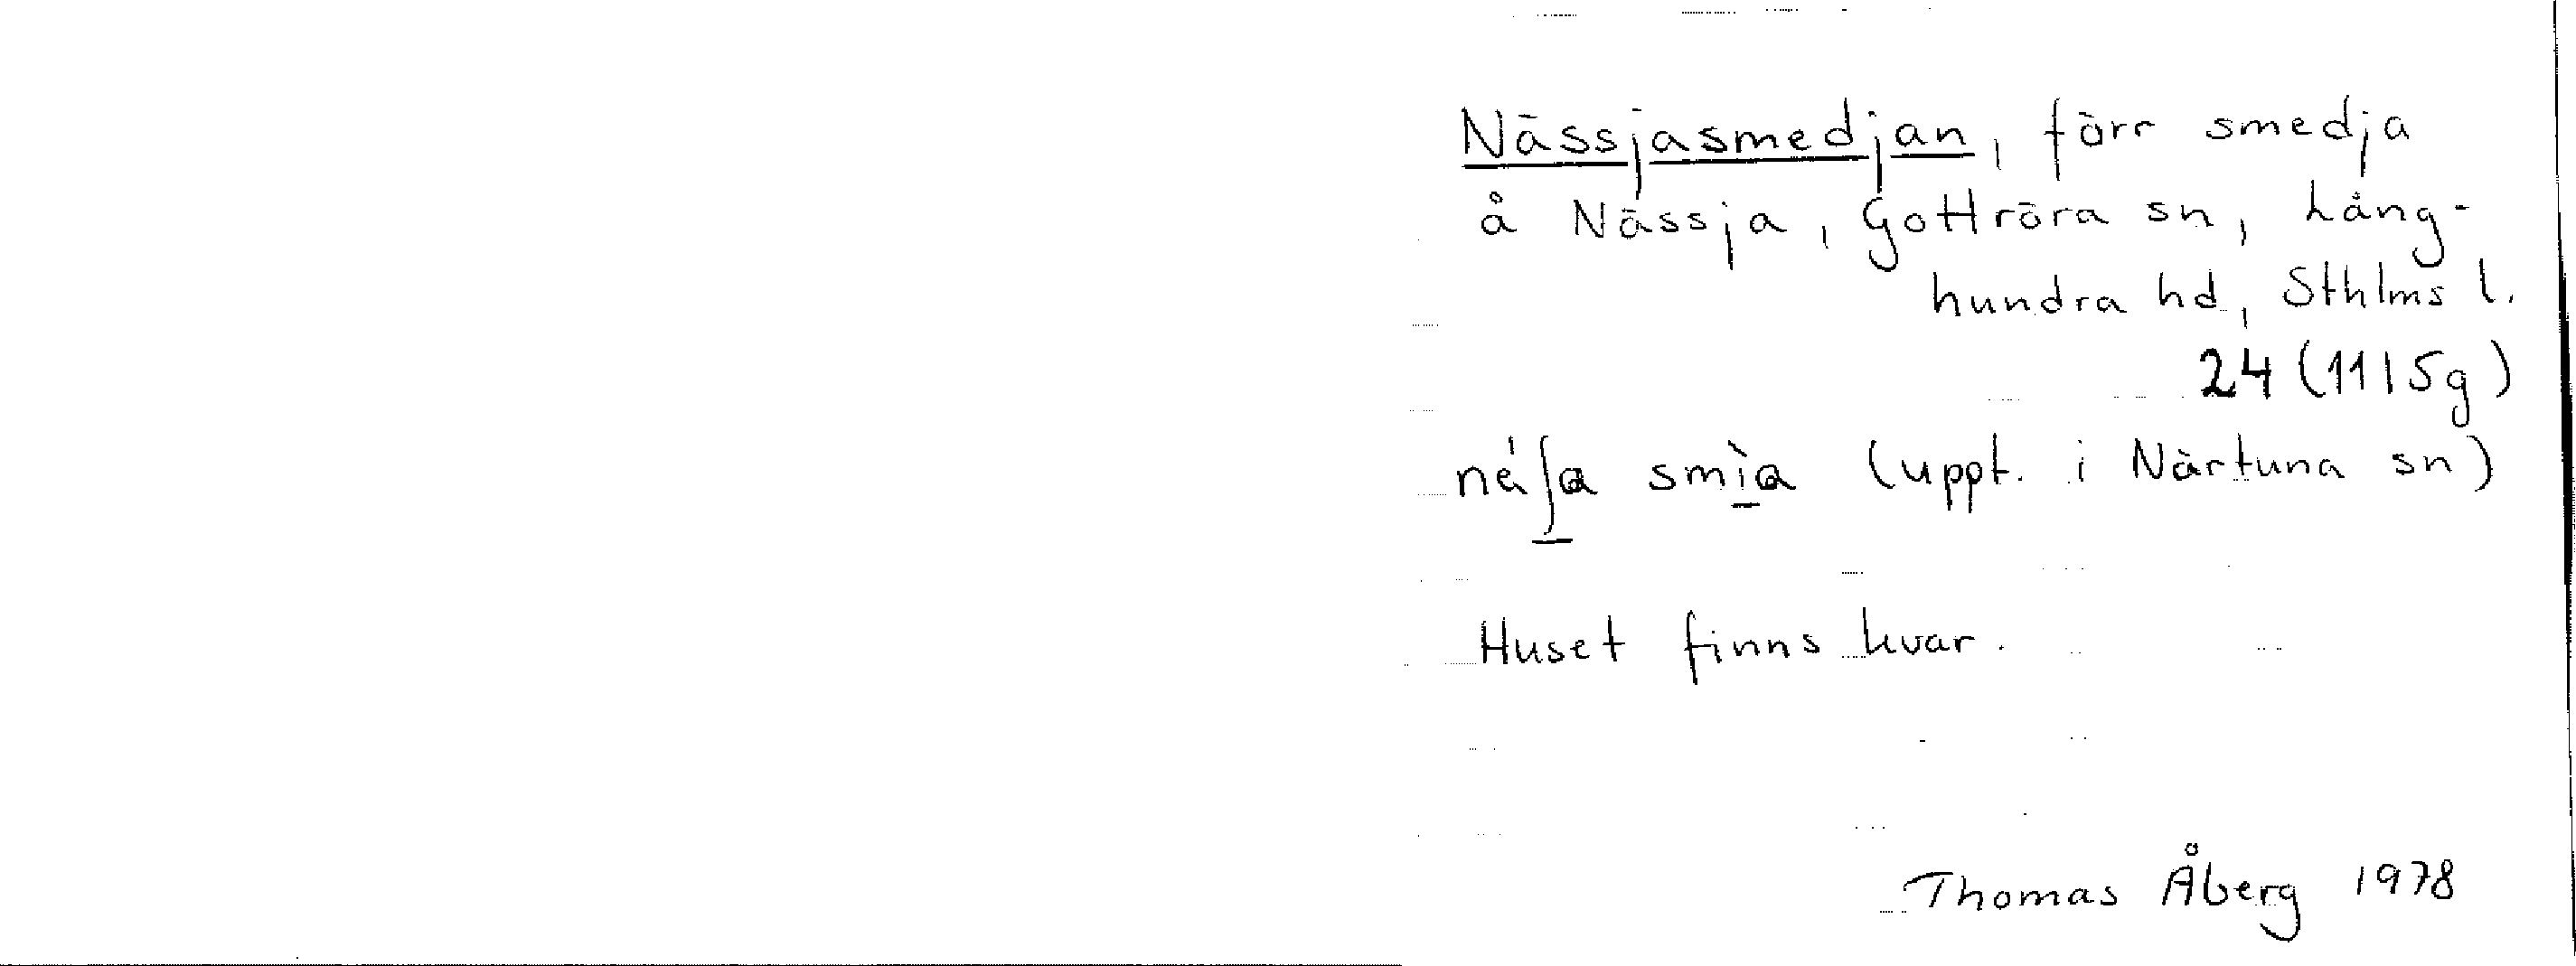 Nässjasmedjan, förr smedja
å Nässja, Gottröra sn, Lång-
hundra hd, Sthlms l.
24 (11I5g)
né ʃɑ smìɑ (uppt. i Närtuna sn)
Huset finns kvar.
Thomas Åberg 1978